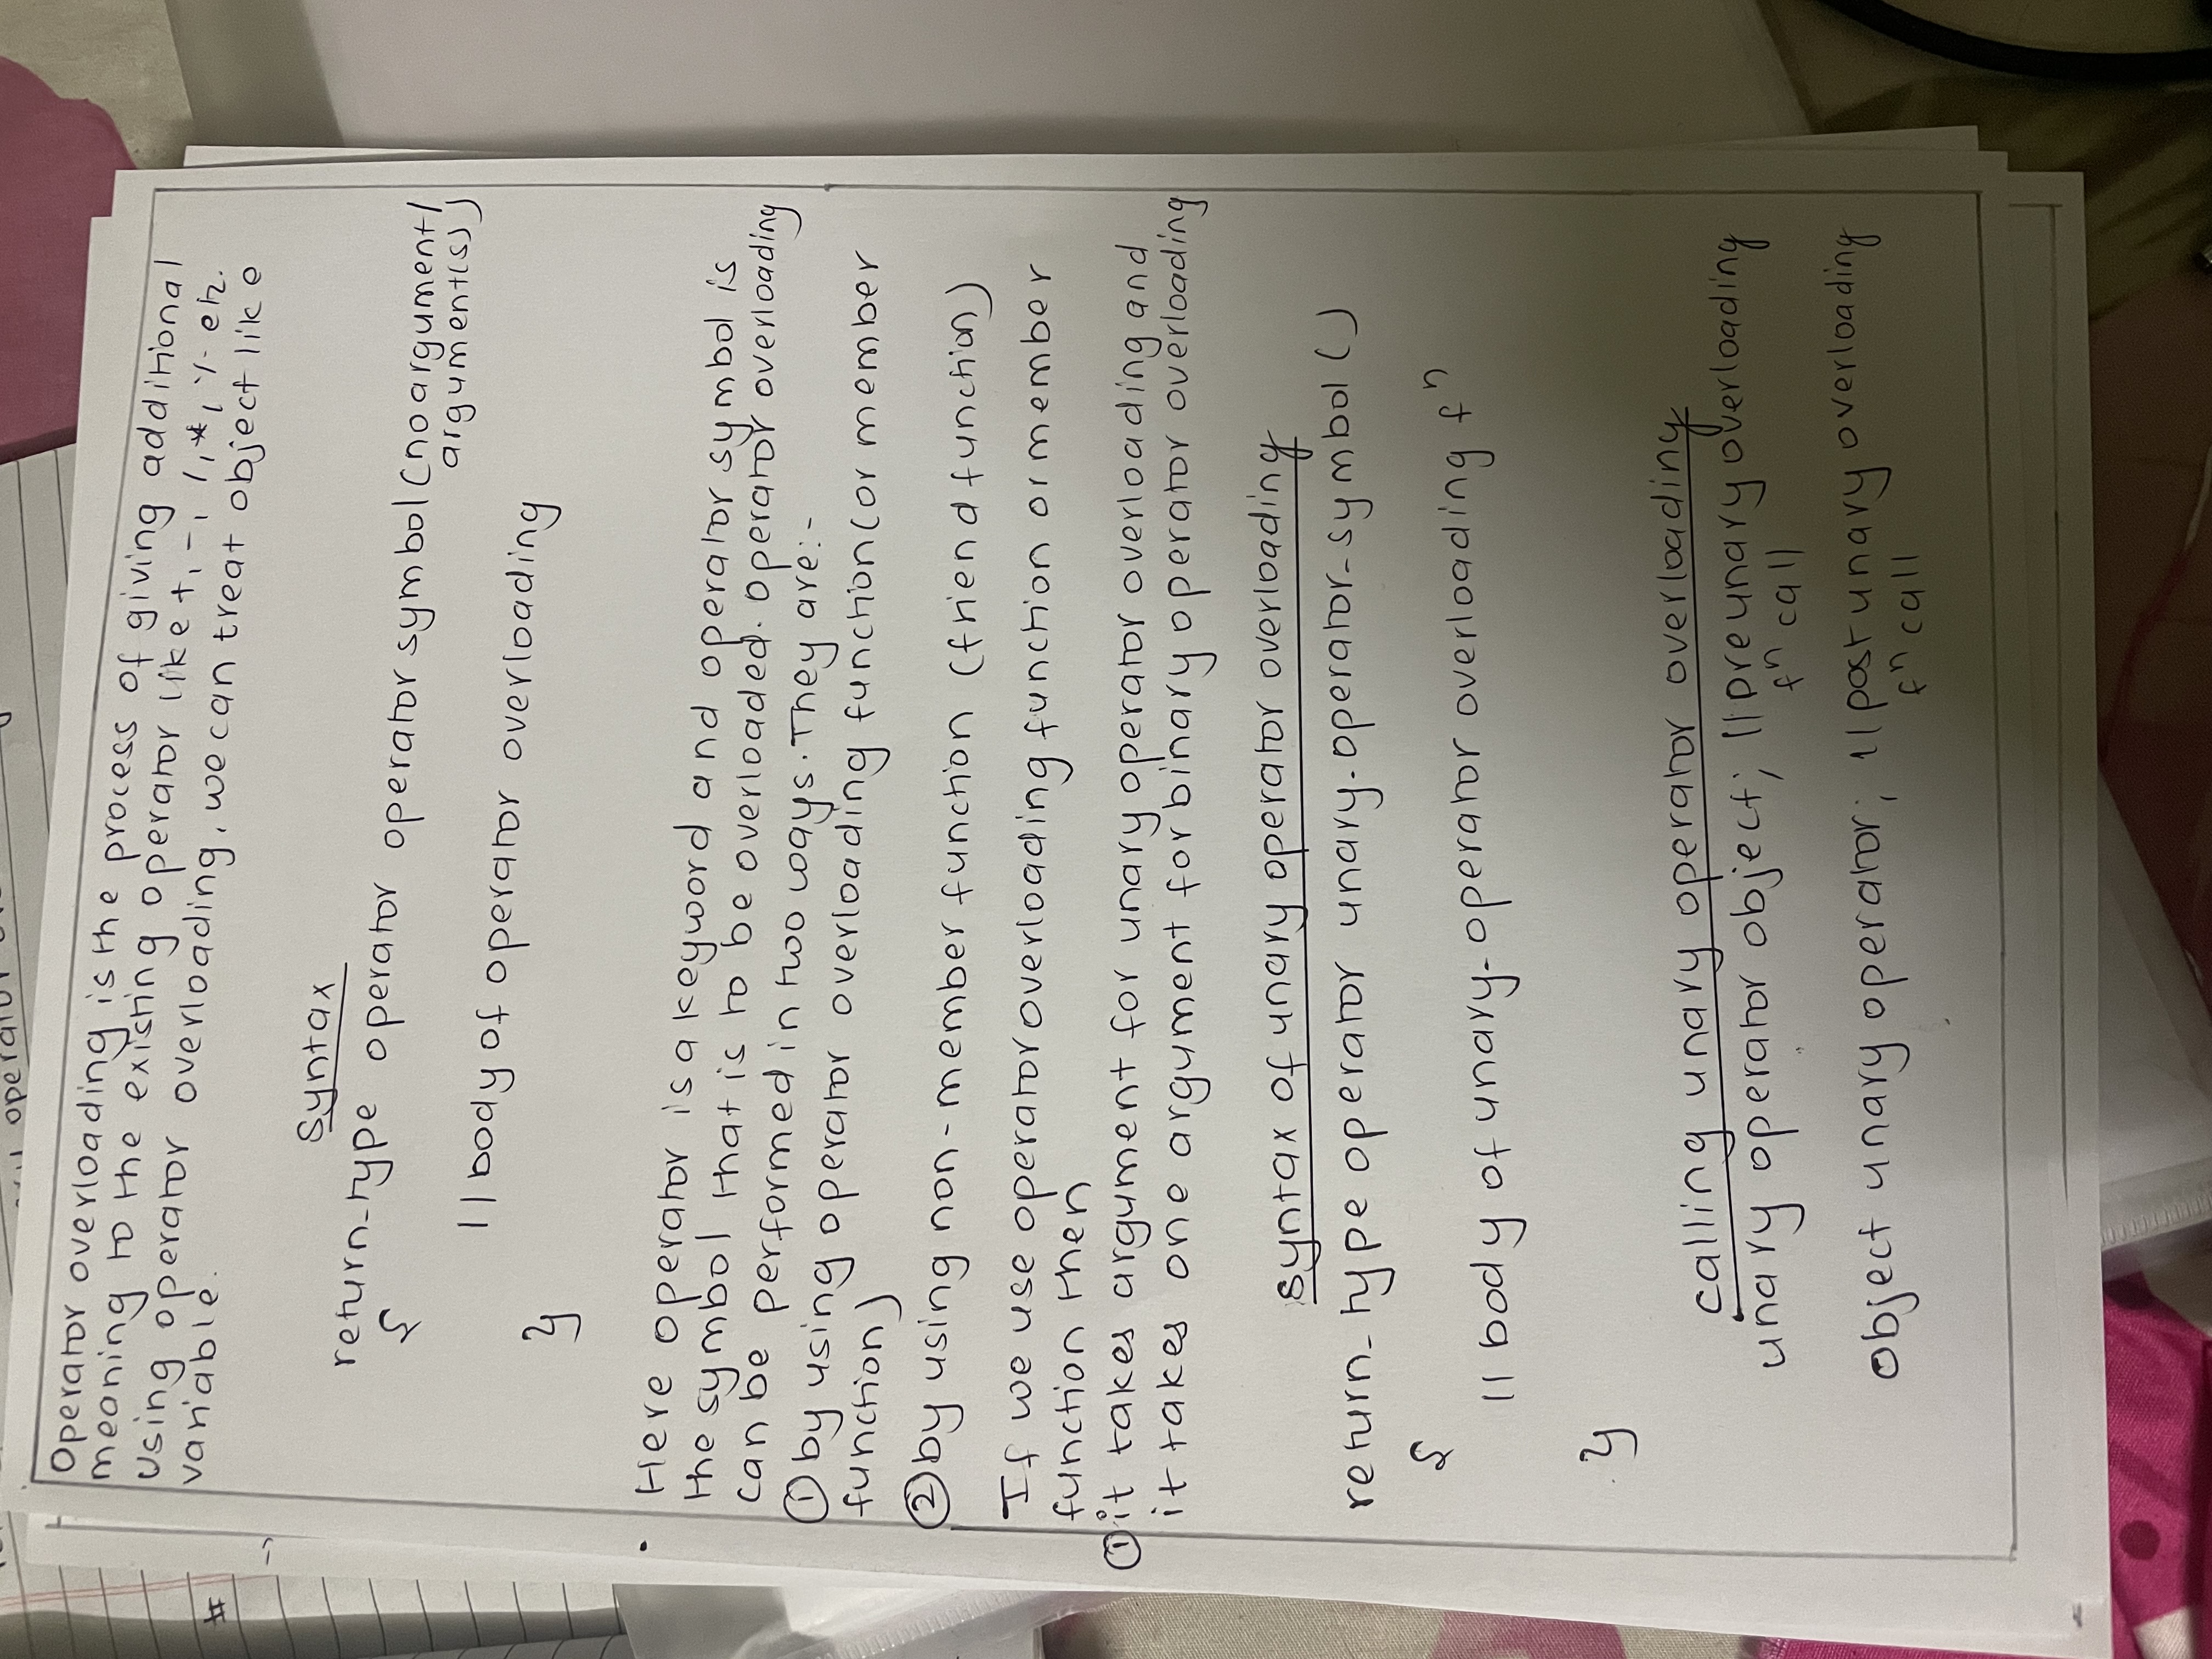 operator
Operator overloading is the process of giving additional
meaning to the existing operator like +, -, /, *, % etc.
Using operator overloading, we can treat object like
variable.
#
→
Syntax
return_type operator operator symbol (no argument/
argument(s))
{
// body of operator overloading
}
• Here operator is a keyword and operator symbol is
the symbol that is to be overloaded. Operator overloading
can be performed in two ways. They are:-
① by using operator overloading function (or member
function)
② by using non-member function (friend function)
If we use operator overloading function or member
function then
① it takes argument for unary operator overloading and
it takes one argument for binary operator overloading
syntax of unary operator overloading
return_type operator unary-operator-symbol ()
{
// body of unary-operator overloading fⁿ
}
calling unary operator overloading
unary operator object; // pre unary overloading
fⁿ call
object unary operator; // post unary overloading
fⁿ call